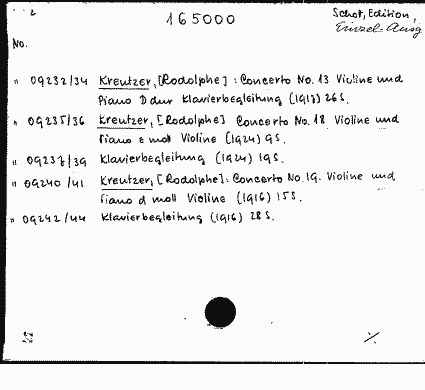 2 165000 Schott, Edition,
Einzel-Ausg
No.
" 09232/34 Kreutzer, [Rodolphe] : Concerto No. 13 Violine und
Piano D dur Klavierbegleitung (1913) 26 S.
" 09235/36 Kreutzer, [Rodolphe] Concerto No. 18 Violine und
Piano e moll Violine (1924) 9 S.
" 09237/39 Klavierbegleitung (1924) 19 S.
" 09240/41 Kreutzer, [Rodolphe]: Concerto No. 19. Violine und
Piano d moll Violine (1916) 15 S.
" 09242/44 Klavierbegleitung (1916) 28 S.